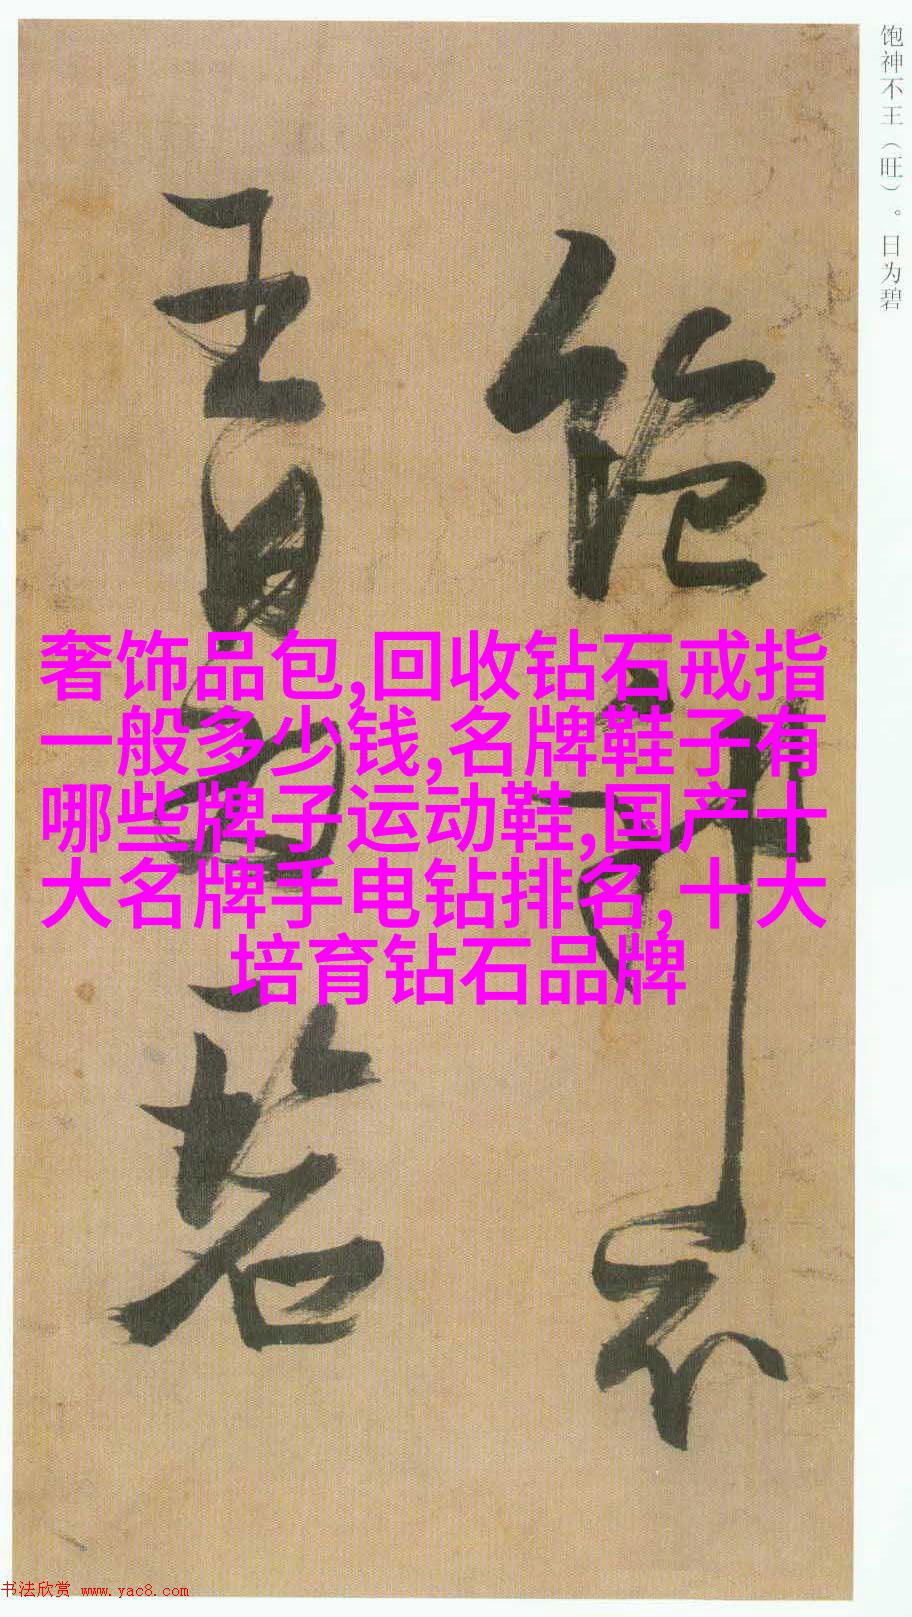 饱神不王（旺）。日为碧
饱神不
王日为碧
奢饰品包,回收钻石戒指
一般多少钱,名牌鞋子有
哪些牌子运动鞋,国产十
大名牌手电钻排名,十大
培育钻石品牌
书法欣赏 www.yac8.com